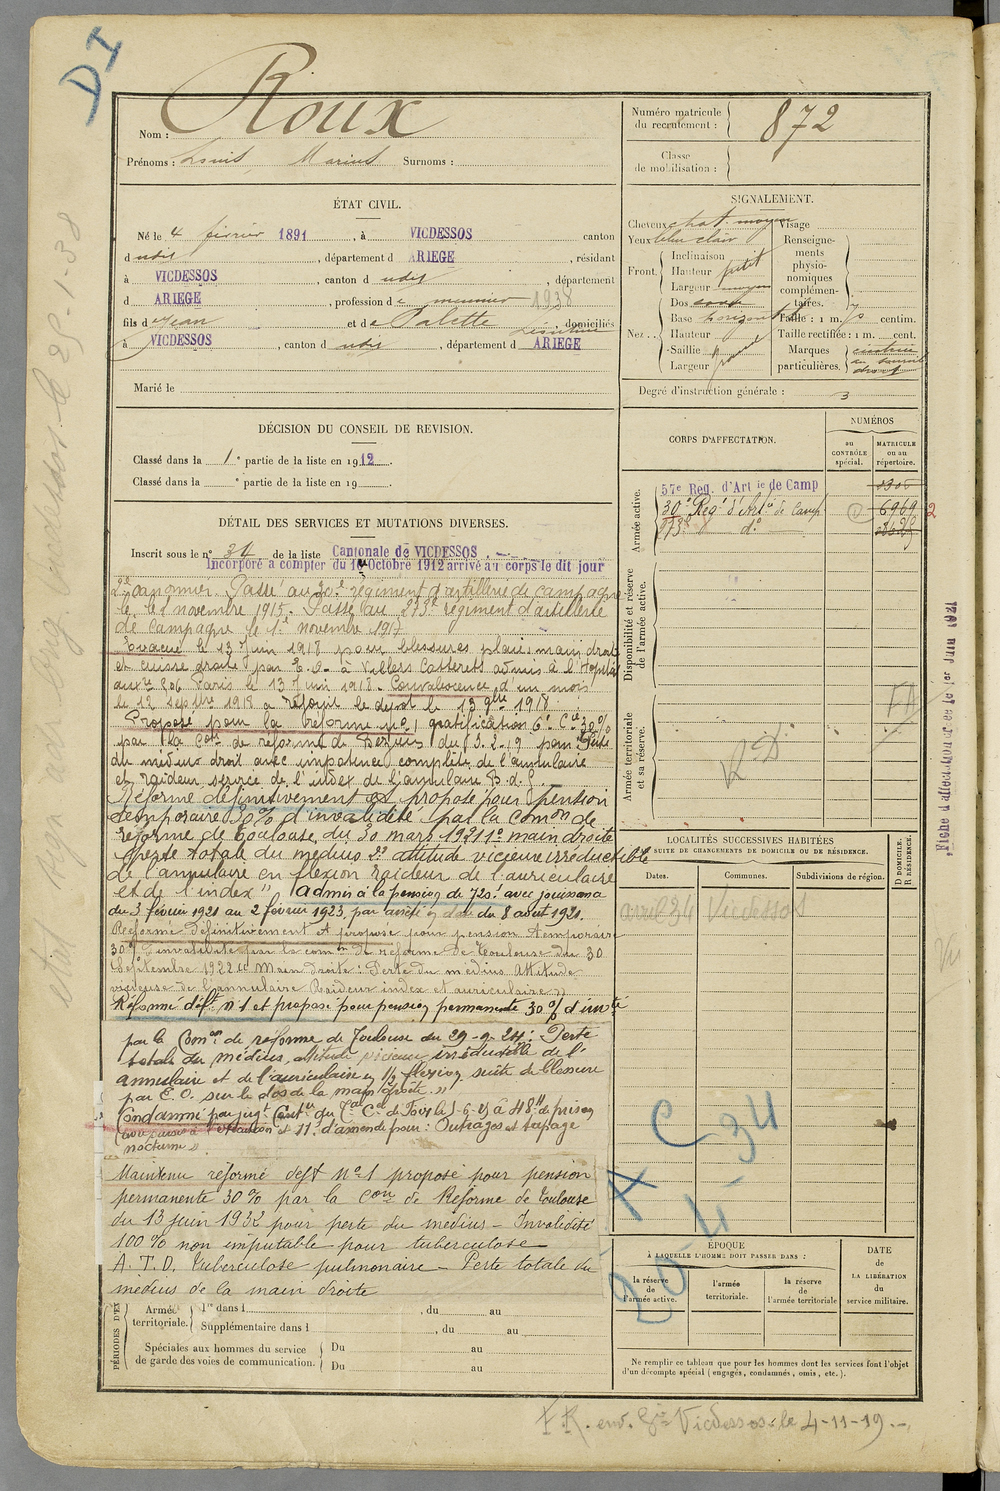 DI
Nom : Roux
Prénoms : Louis Marius Surnoms :
Numéro matricule du recrutement : 872
Classe de mobilisation :
ÉTAT CIVIL.
Né le 4 février 1891, à VICDESSOS canton
d udit, département d ARIEGE, résidant
à VICDESSOS, canton d udit, département
d ARIEGE, profession de meunier 1938
fils d Jean et de Palette, domiciliés
à VICDESSOS, canton d udit, département d ARIEGE
Marié le
SIGNALEMENT.
Cheveux chat. moyen Visage
Yeux bleu clair
Front. Inclinaison
Hauteur petit
Largeur moyen
Nez. Dos
Base horizontale
Hauteur
Saillie
Largeur grande
Renseignements physionomiques complémentaires.
Taille : 1 m. centim.
Taille rectifiée : 1 m. cent.
Marques particulières. cicatrice au sourcil droit
Degré d'instruction générale : 3
DÉCISION DU CONSEIL DE REVISION.
Classé dans la 1e partie de la liste en 1912.
Classé dans la e partie de la liste en 19 .
CORPS D'AFFECTATION.
NUMÉROS
au CONTRÔLE spécial.
MATRICULE ou au répertoire.
Armée active.
57e Reg. d'Art ie de Camp
30e Regt d'Artie de Camp 6969 2
273e do
Disponibilité et réserve de l'armée active.
Armée territoriale et sa réserve.
DÉTAIL DES SERVICES ET MUTATIONS DIVERSES.
Inscrit sous le no 34 de la liste Cantonale de VICDESSOS.
Incorporé à compter du 1 Octobre 1912 arrivé au corps le dit jour
2e canonnier. Passé au 30e régiment d'artillerie de campagne
le novembre 1915. Passé au 273e régiment d'artillerie
de Campagne le 1er novembre 1917
Evacué le 13 juin 1918 pour blessures plaies main droite
et cuisse droite par E.O. à Villers Cotterets admis à l'Hôpital
auxre 306 Paris le 13 juin 1918. Convalescence d'un mois
le 12 septbre 1918 a rejoint le dépôt le 13 9bre 1918.
Proposé pour la réforme no 1 gratification 6e Cie 30%
par la Con de réforme de Béziers du 3.2.19 pour Perte
du médius droit avec impotence complète de l'annulaire
et raideur serrée de l'index de l'annulaire B.d.G.
Réformé définitivement et proposé pour pension
temporaire 30% d'invalidité par la Comon de
réforme de Toulouse du 30 mars 1921 1o main droite
perte totale du médius 2o attitude vicieuse irréductible
de l'annulaire en flexion raideur de l'auriculaire
et de l'index" admis à la pension de 720f avec jouissance
du 3 février 1921 au 2 février 1923, par arrêté en date du 8 août 1921.
Réformé définitivement et proposé pour pension temporaire
30% d'invalidité par la comon de réforme de Toulouse du 30
Septembre 1922 Main droite : Perte du médius Attitude
vicieuse de l'annulaire Raideur index et auriculaire »
Réformé déft. n°1 et proposé pour pension permanente 30% d'invté
par la Comon de réforme de Toulouse du 29-9-24: Perte
totale du médius, attitude vicieuse irréductible de l'
annulaire et de l'auriculaire en 1/2 flexion suite de blessure
par E.O. sur le dos de la main droite.»
Condamné par jugt Contre du Tal Cel de Foix le 5-6-25 à 48h de prison
avec sursis à l'exécution et 11f. d'amende pour : Outrages et tapage
nocturne ».
Maintenu réformé déft No 1 proposé pour pension
permanente 30% par la Con de Réforme de Toulouse
du 13 juin 1932 pour perte du médius - Invalidité
100% non imputable pour tuberculose
A.T.O. Tuberculose pulmonaire - Perte totale du
médius de la main droite
LOCALITÉS SUCCESSIVES HABITÉES
PAR SUITE DE CHANGEMENTS DE DOMICILE OU DE RÉSIDENCE.
Dates. Communes. Subdivisions de région. D DOMICILE. R RÉSIDENCE.
avril 34 Vicdessos
A C
20-4-34
ÉPOQUE
À LAQUELLE L'HOMME DOIT PASSER DANS :
la réserve de l'armée active.
l'armée territoriale.
la réserve de l'armée territoriale
DATE de LA LIBÉRATION du service militaire.
PÉRIODES D'EX
Armée territoriale. 1re dans l , du au
Supplémentaire dans l , du au
Spéciales aux hommes du service de garde des voies de communication. Du au
Du au
Ne remplir ce tableau que pour les hommes dont les services font l'objet
d'un décompte spécial (engagés, condamnés, omis, etc.).
F.R. env. Gie Vicdessos le 4-11-19.-